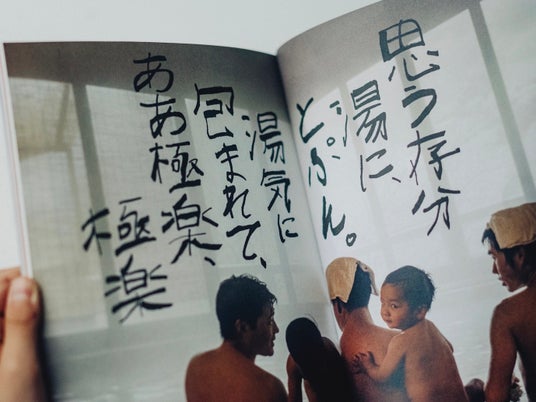 思う存分
湯に、
とぷん。
湯気に
包まれて、
ああ極楽、
極楽